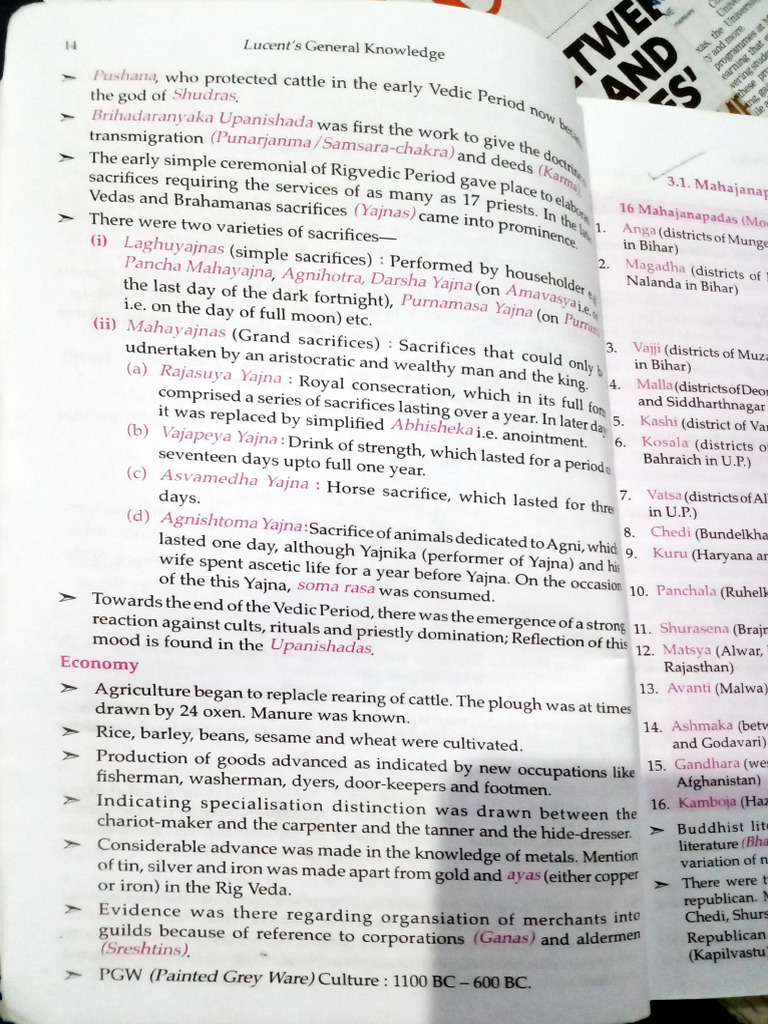 14
Lucent's General Knowledge
➢ Pushana, who protected cattle in the early Vedic Period now
the god of Shudras.
➢ Brihadaranyaka Upanishada was first the work to give the
transmigration (Punarjanma/Samsara-chakra) and deeds (Karma)
➢ The early simple ceremonial of Rigvedic Period gave place to
sacrifices requiring the services of as many as 17 priests. In the
Vedas and Brahamanas sacrifices (Yajnas) came into prominence.
➢ There were two varieties of sacrifices—
(i) Laghuyajnas (simple sacrifices) : Performed by householder
Pancha Mahayajna, Agnihotra, Darsha Yajna (on Amavasya i.e.
the last day of the dark fortnight), Purnamasa Yajna (on
i.e. on the day of full moon) etc.
(ii) Mahayajnas (Grand sacrifices) : Sacrifices that could only
udnertaken by an aristocratic and wealthy man and the king.
(a) Rajasuya Yajna : Royal consecration, which in its full
comprised a series of sacrifices lasting over a year. In later
it was replaced by simplified Abhisheka i.e. anointment.
(b) Vajapeya Yajna : Drink of strength, which lasted for a period
seventeen days upto full one year.
(c) Asvamedha Yajna : Horse sacrifice, which lasted for
days.
(d) Agnishtoma Yajna : Sacrifice of animals dedicated to Agni,
lasted one day, although Yajnika (performer of Yajna) and his
wife spent ascetic life for a year before Yajna. On the occasion
of the this Yajna, soma rasa was consumed.
➢ Towards the end of the Vedic Period, there was the emergence of a strong
reaction against cults, rituals and priestly domination; Reflection of this
mood is found in the Upanishadas.
Economy
➢ Agriculture began to replacle rearing of cattle. The plough was at times
drawn by 24 oxen. Manure was known.
➢ Rice, barley, beans, sesame and wheat were cultivated.
➢ Production of goods advanced as indicated by new occupations like
fisherman, washerman, dyers, door-keepers and footmen.
➢ Indicating specialisation distinction was drawn between the
chariot-maker and the carpenter and the tanner and the hide-dresser.
➢ Considerable advance was made in the knowledge of metals. Mention
of tin, silver and iron was made apart from gold and ayas (either copper
or iron) in the Rig Veda.
➢ Evidence was there regarding organsiation of merchants into
guilds because of reference to corporations (Ganas) and aldermen
(Sreshtins).
➢ PGW (Painted Grey Ware) Culture : 1100 BC – 600 BC.
3.1.
16 Mahajanapadas
1. Anga (districts of
in Bihar)
2. Magadha (districts of
Nalanda in Bihar)
3. Vajji (districts of
in Bihar)
4. Malla (districts of
and Siddharthnagar
5. Kashi (district of
6. Kosala (districts
Bahraich in U.P.)
7. Vatsa (districts of
in U.P.)
8. Chedi
9. Kuru (Haryana
10. Panchala
11. Shurasena
12. Matsya (Alwar,
Rajasthan)
13. Avanti (Malwa)
14. Ashmaka
and Godavari)
15. Gandhara
Afghanistan)
16. Kamboja
➢ Buddhist
literature
variation of
➢ There were
republican.
Chedi,
Republican
(Kapilvastu
AND